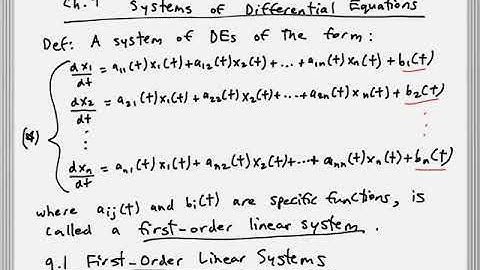 Systems of Differential Equations
Def: A system of DEs of the form:
dx1/dt = a11(t)x1(t)+a12(t)x2(t)+...+a1n(t)xn(t)+b1(t)
dx2/dt = a21(t)x1(t)+a22(t)x2(t)+...+a2n(t)xn(t)+b2(t)
(*)
dxn/dt = an1(t)x1(t)+an2(t)x2(t)+...+ann(t)xn(t)+bn(t)
where aij(t) and bi(t) are specific functions, is
called a first-order linear system.
9.1 First-Order Linear Systems